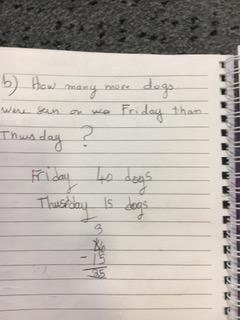 b) How many more dogs
were seen on Friday than
Thusday ?
Friday 40 dogs
Thursday 15 dogs
3
40
- 15
25